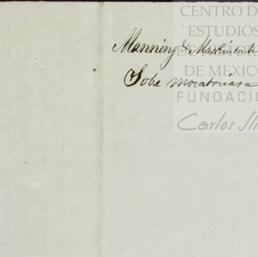 CENTRO D
ESTUDIOS
DE MEXICO
FUNDACI
Carlos Sli
Manning & Mackintosh
Sobre moratorias